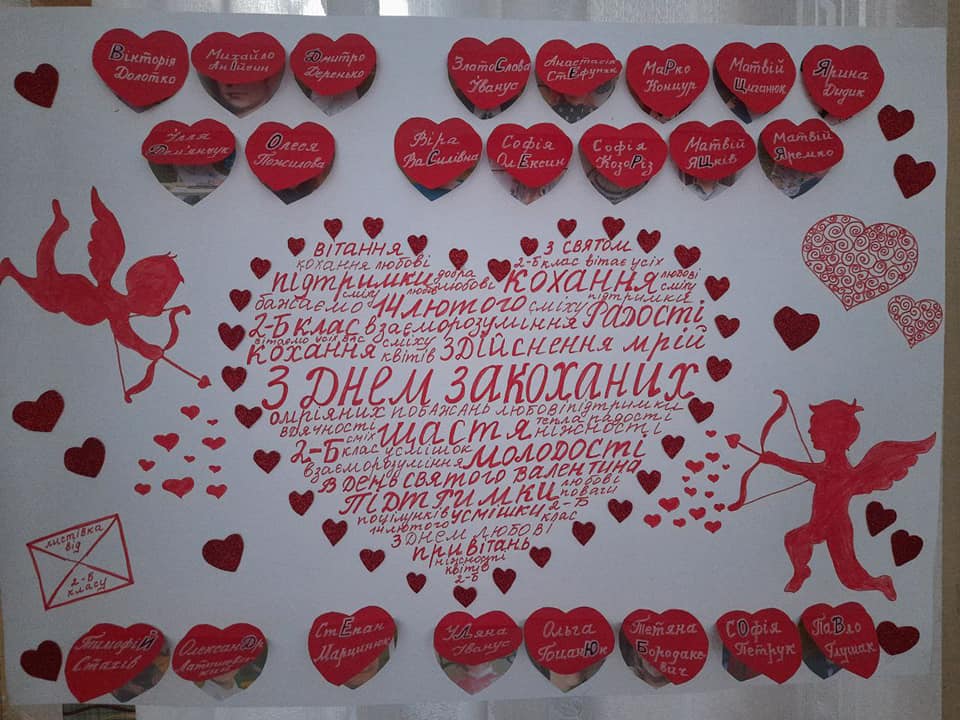 Вікторія Долотко
Михайло
Дмитро Деренько
ЗлатоСлова Іванус
Анастасія
МаРко Концур
Матвій
Ярина Дидик
Уляна Дем'янчук
Олеся Пожилова
Віра ВаСилівна
Софія ОлЕксин
Софія КозоРіз
Матвій ЯЦків
Матвій Яремко
вітання
з святом
кохання любові
2-Б клас вітає усіх
підтримки добра кохання любові
бажаємо сміху 14 лютого сміху підтримки радості
2-Б клас взаєморозуміння
вітаємо усіх вас сміху
кохання квітів здійснення мрій
З ДНЕМ ЗАКОХАНИХ
омріяних побажань любові підтримки
вдячності сміх щастя тепла радості
ніжності
2-Б клас усмішок молодості
взаєморозуміння
в день святого Валентина
підтримки любові
поваги
поцілунків усмішки 2-Б
14 лютого клас
з днем любові
привітань
ніжності
квітів
2-Б
листівка
від
2-Б
класу
ТимофіЙ Стахів
ОлександР
СтЕпан Марцинюк
УЛяна Іванус
Ольга ГоцанЮк
Тетяна Бородакевич
СОфія Петрук
ПаВло Глушак